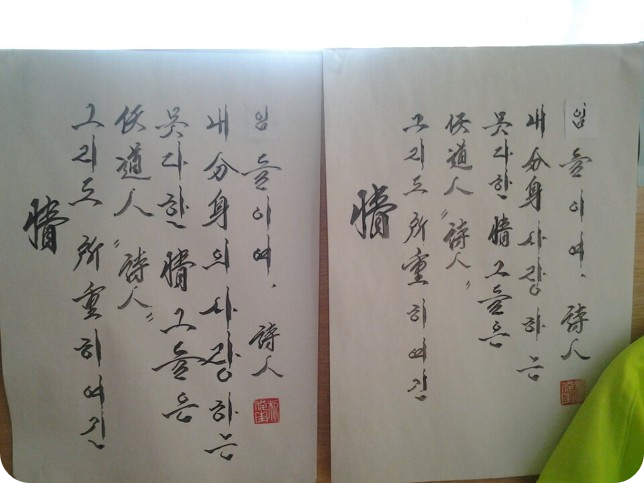 임들이여. 詩人
내 分身의 사랑하는
못다한 그들은
道人 "詩人"
그리도 所重히 여긴
임들이여. 詩人
내 分身 사랑하는
못다한 그들은
道人 "詩人"
그리도 所重히 여긴